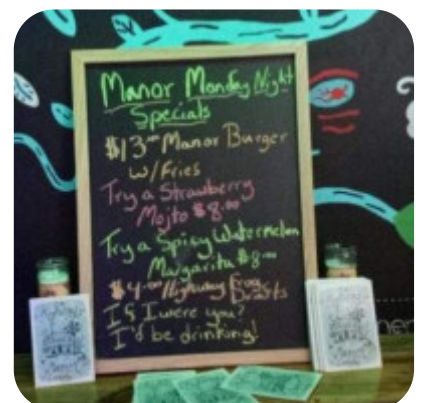 Manor Monday Night
Specials
$13.00 Manor Burger
w/Fries
Try a Strawberry
Mojto $8.00
Try a Spicy Watermelon
Margarita $8.00
$4.00 Highway Frog
Drafts
If I were you?
I'd be drinking!